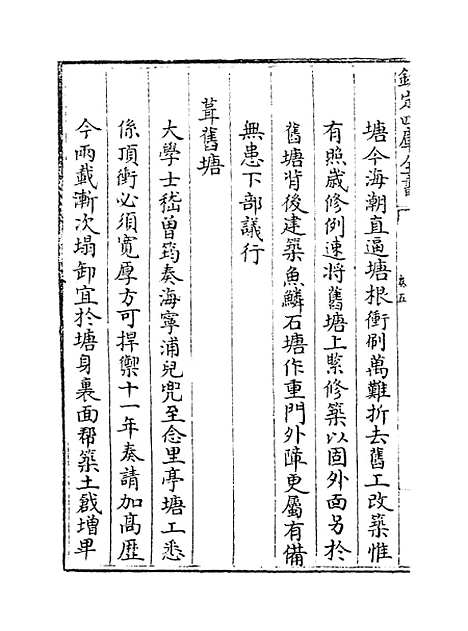 欽定四庫全書
卷五
塘今海潮直逼塘根衝刷萬難折去舊工改築惟
有照歲修例速將舊塘上緊修築以固外面另於
舊塘背後建築魚鱗石塘作重門外障更屬有備
無患下部議行
葺舊塘
大學士嵇曾筠奏海寧浦兒兜至念里亭塘工悉
係頂衝必須寛厚方可捍禦十一年奏請加高歴
今兩載漸次塌卸宜於塘身裏面帮築土戧增卑